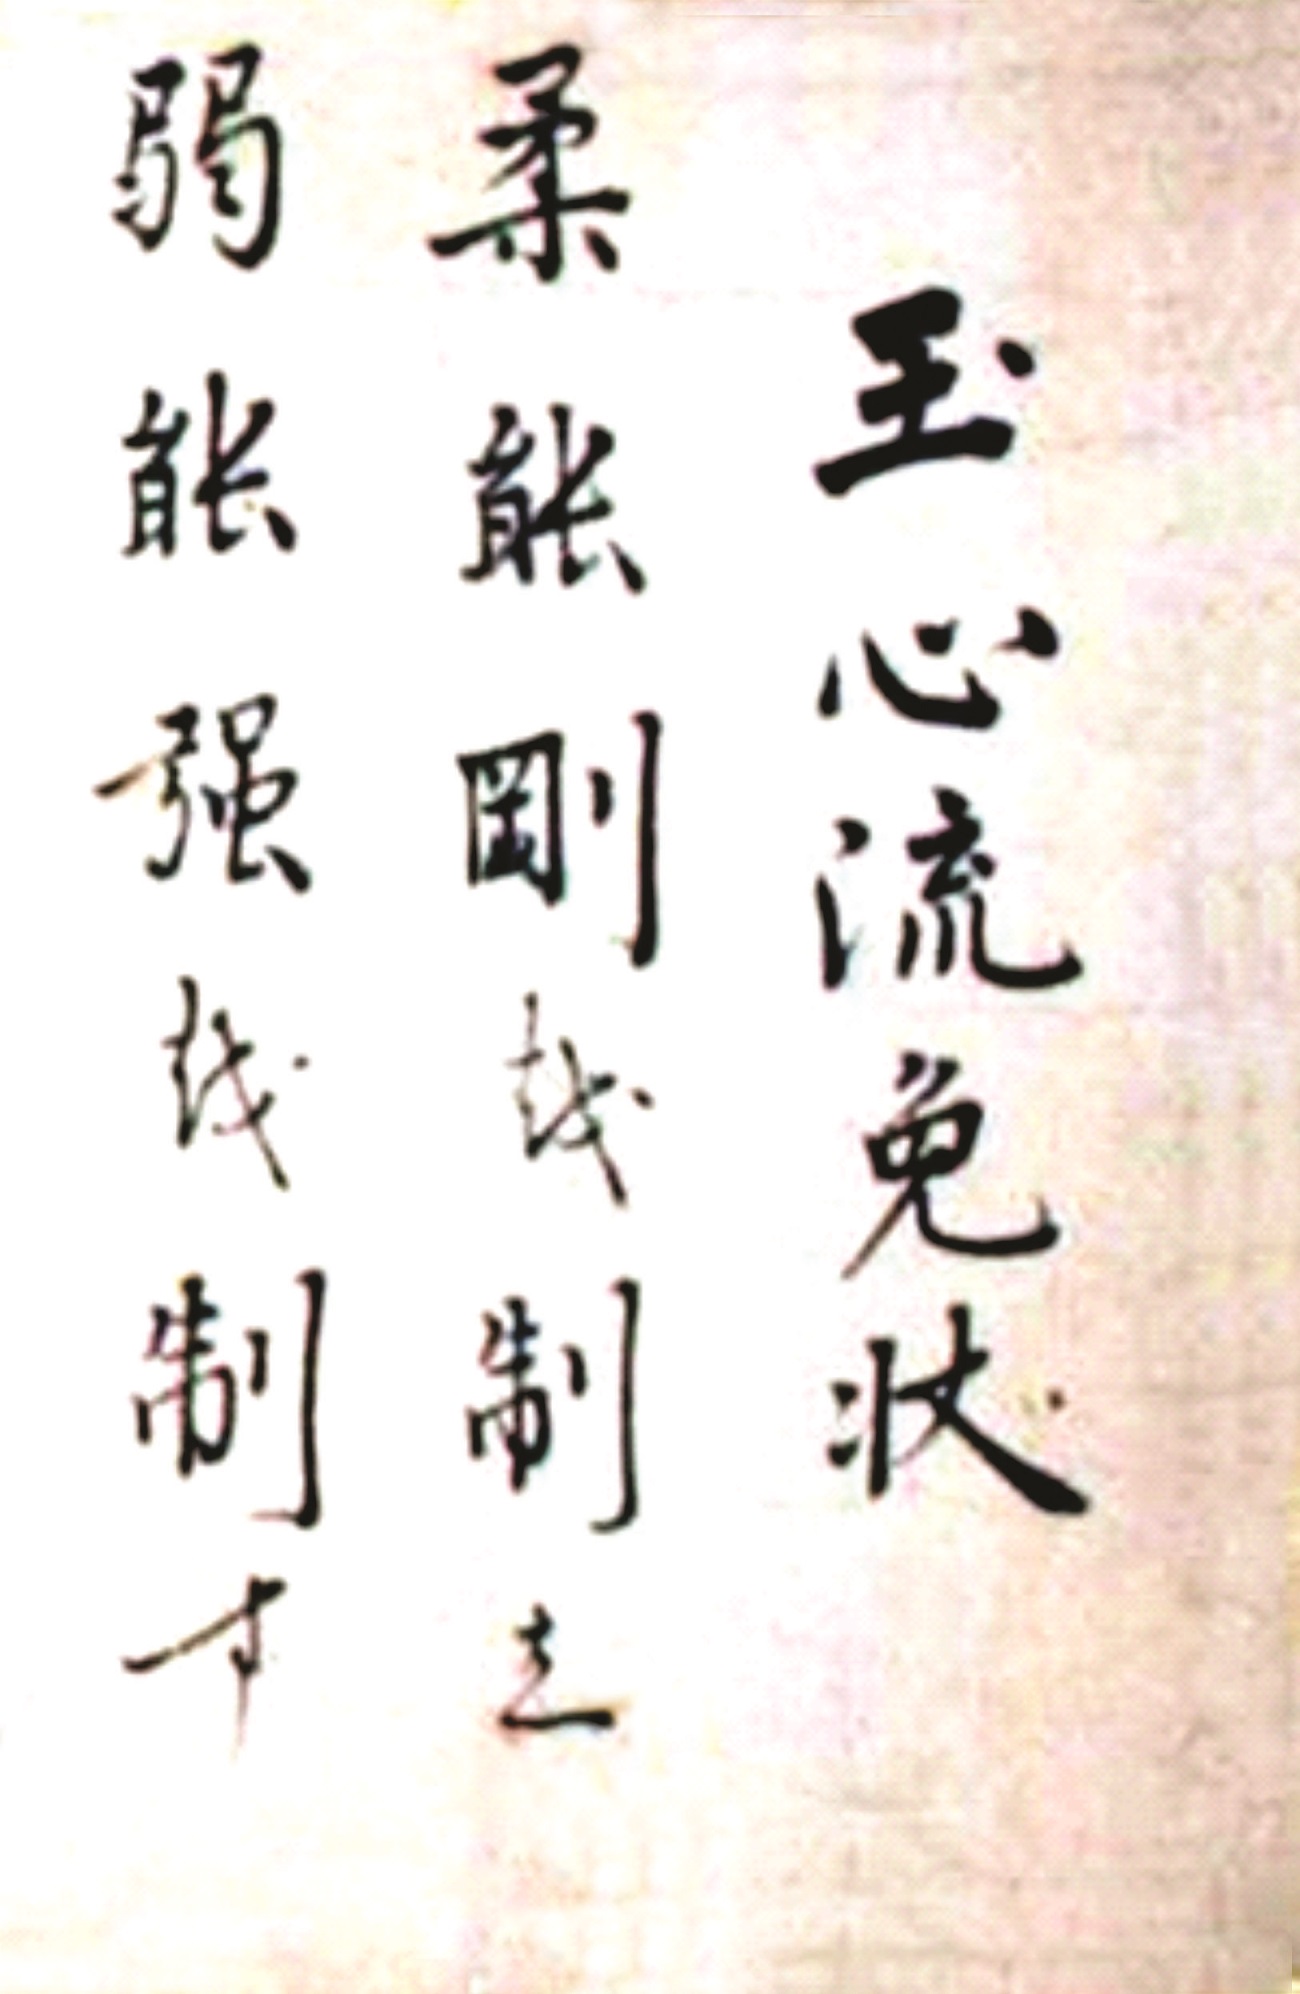 玉心流免状
柔能剛越制之
弱能强越制寸